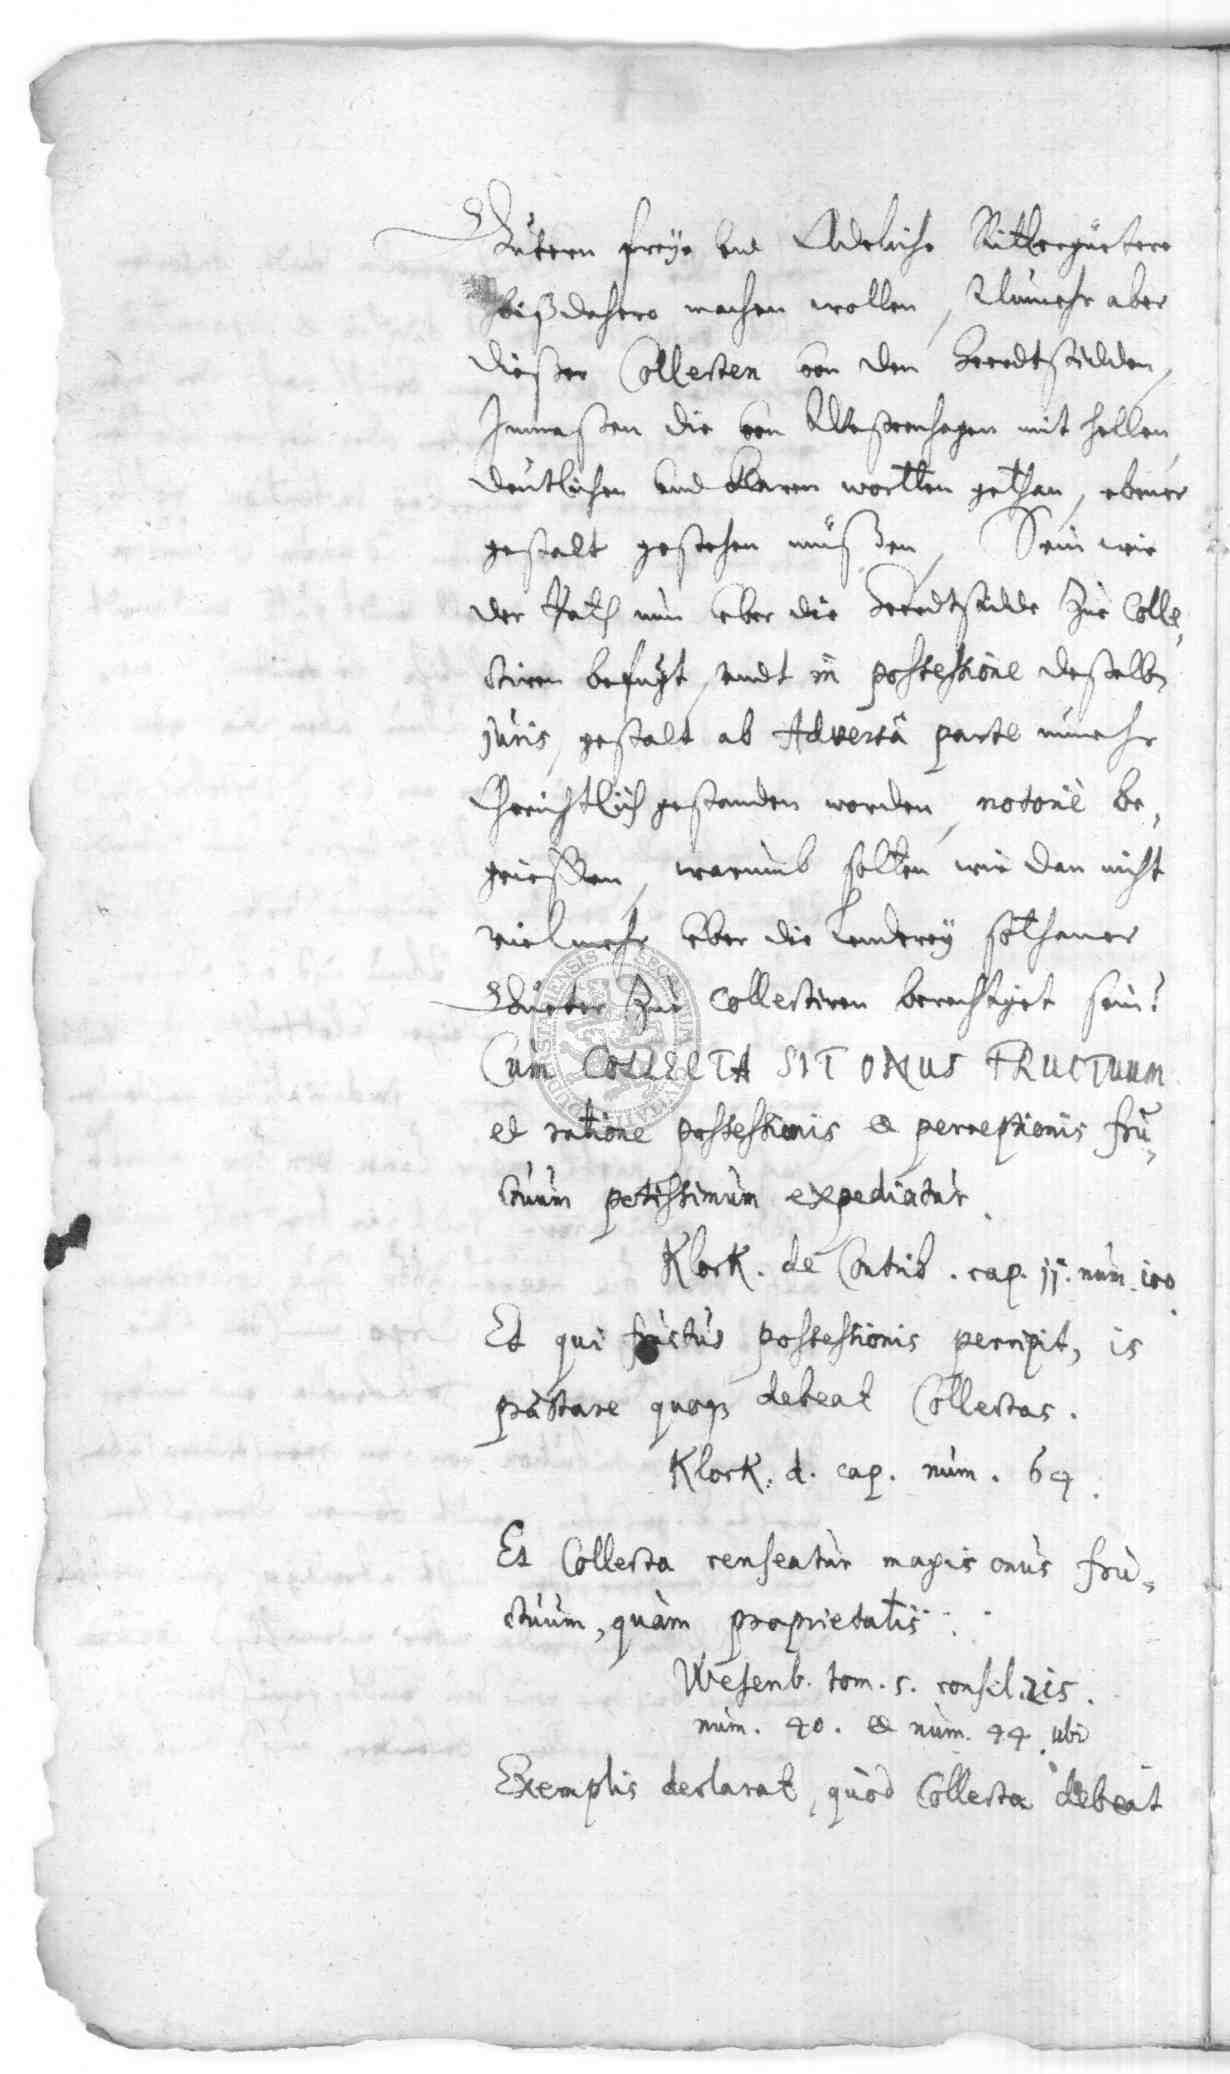 Gütern freye und Adeliche Rittergüetere
bißdahero machen wollen, Nunmehr aber
dießer Collecten von den
Inmaßen die von Westernhagen mit hellen,
deutlichen und klaren wortten gethan, ebener
gestalt gestehen müßen, Sein wir
der Rath nun uber die zue Colle,
ctiren befugt, undt in possessione deßelbn
juris, gestalt ab Adversâ parte nunmehr
Gerichtlich gestanden worden, notoriè be,
grieffen, warumb sollten wir dan nicht
vielmehr uber die Länderey sothaner
Güeter zue Collectiren berechtiget sein?
Cùm COLLECTA SIT ONUS FRUCTUUM
et ratione possessionis & perceptionis fru,
ctuum potissimùm expediatur.
Klock. de Contrib. cap. 11. num. 100.
Et qui fructus possessionis percipit, is
præstare quoqz debeat Collectas.
Klock. d. cap. num. 64.
Et Collecta censeatur magis onus fru,
ctuum, quàm proprietatis.
Wesenb. tom. 5. consil. 215.
num. 40. & num. 44. ubi
Exemplis declarat, quòd Collecta debeat